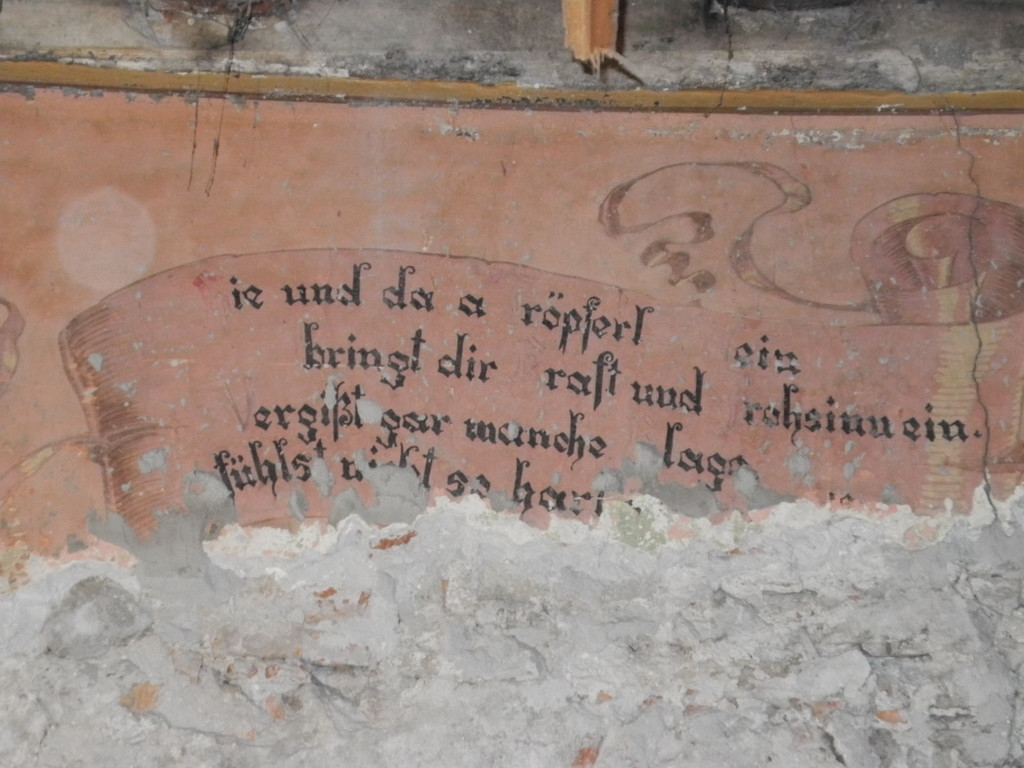 ie und da a röpferl ein
bringt dir rast und rohsinn ein.
ergißt gar manche lage
fühlst nicht so har